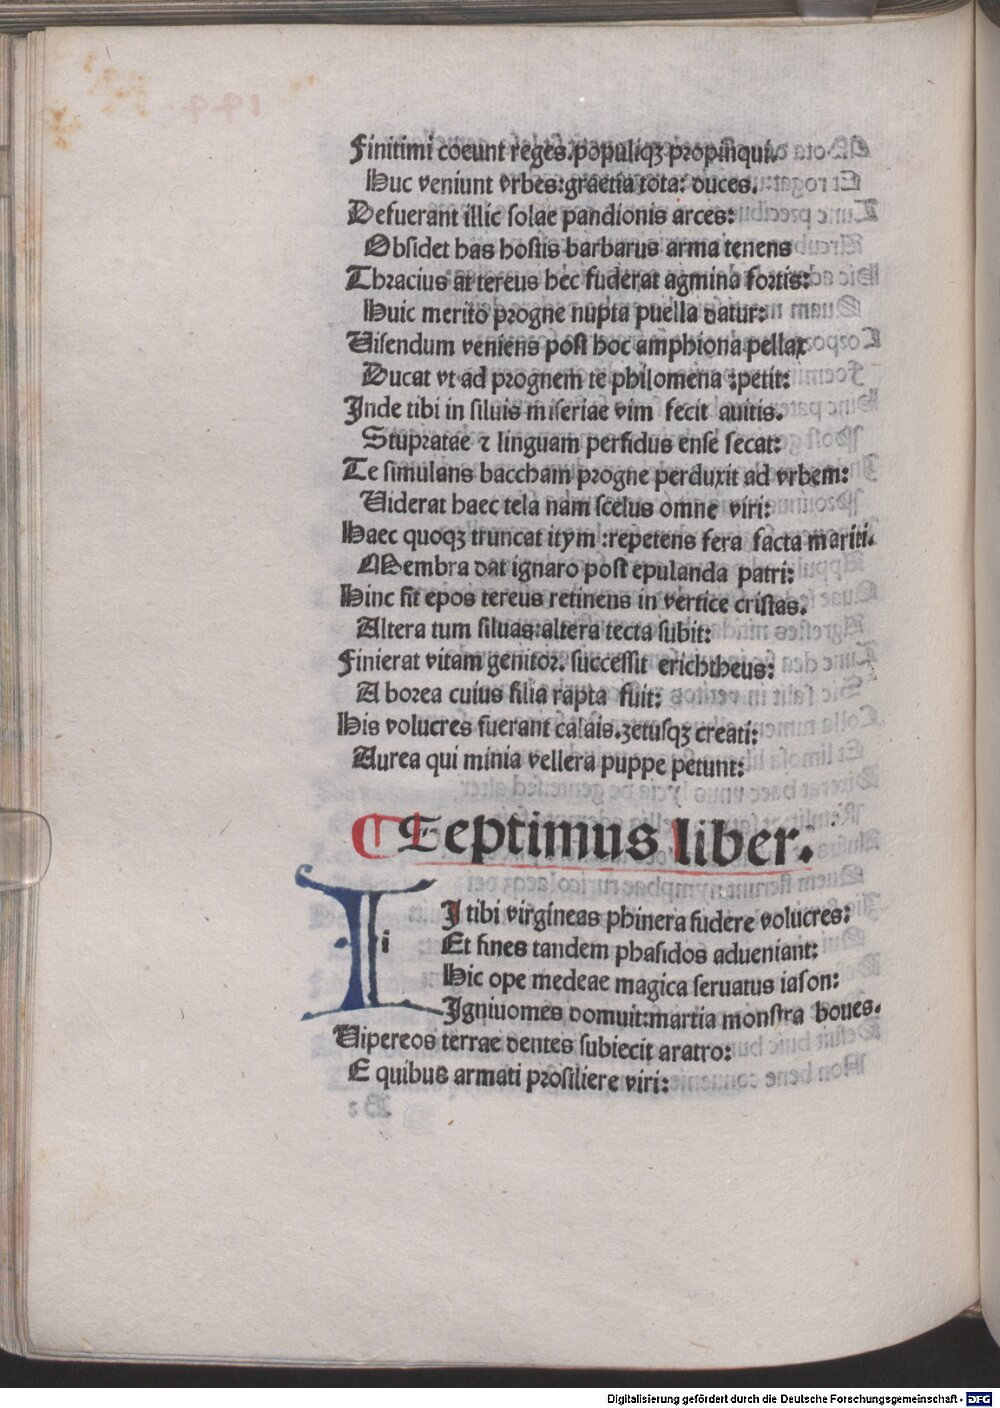 Finitimi coeunt reges.populiqꝫ propinqui.
Huc veniunt vrbes:graetia tota: duces.
Defuerant illic solae pandionis arces:
Obsidet has hostis barbarus arma tenens
Thracius at tereus hec fuderat agmina fortis:
Huic merito progne nupta puella datur:
Uisendum veniens post hoc amphiona pellax
Ducat vt ad prognem te philomena :petit:
Inde tibi in siluis miseriae vim fecit auitis.
Stupratae ⁊ linguam perfidus ense secat:
Te simulans baccham progne perduxit ad vrbem:
Uiderat haec tela nam scelus omne viri:
Haec quoqꝫ truncat itym :repetens fera facta mariti.
Membra dat ignaro post epulanda patri:
Hinc fit epos tereus retinens in vertice cristas.
Altera tum siluas:altera tecta subit:
Finierat vitam genitor. successit erichtheus:
A borea cuius filia rapta fuit:
His volucres fuerant calais.zetusqꝫ creati:
Aurea qui minia vellera puppe petunt:
Septimus liber.
I tibi virgineas phinera fudere volucres:
i Et fines tandem phasidos adueniant:
Hic ope medeae magica seruatus iason:
Igniuomes domuit:martia monstra boues.
Uipereos terrae dentes subiecit aratro:
E quibus armati prosiliere viri:
Digitalisierung gefördert durch die Deutsche Forschungsgemeinschaft - DFG